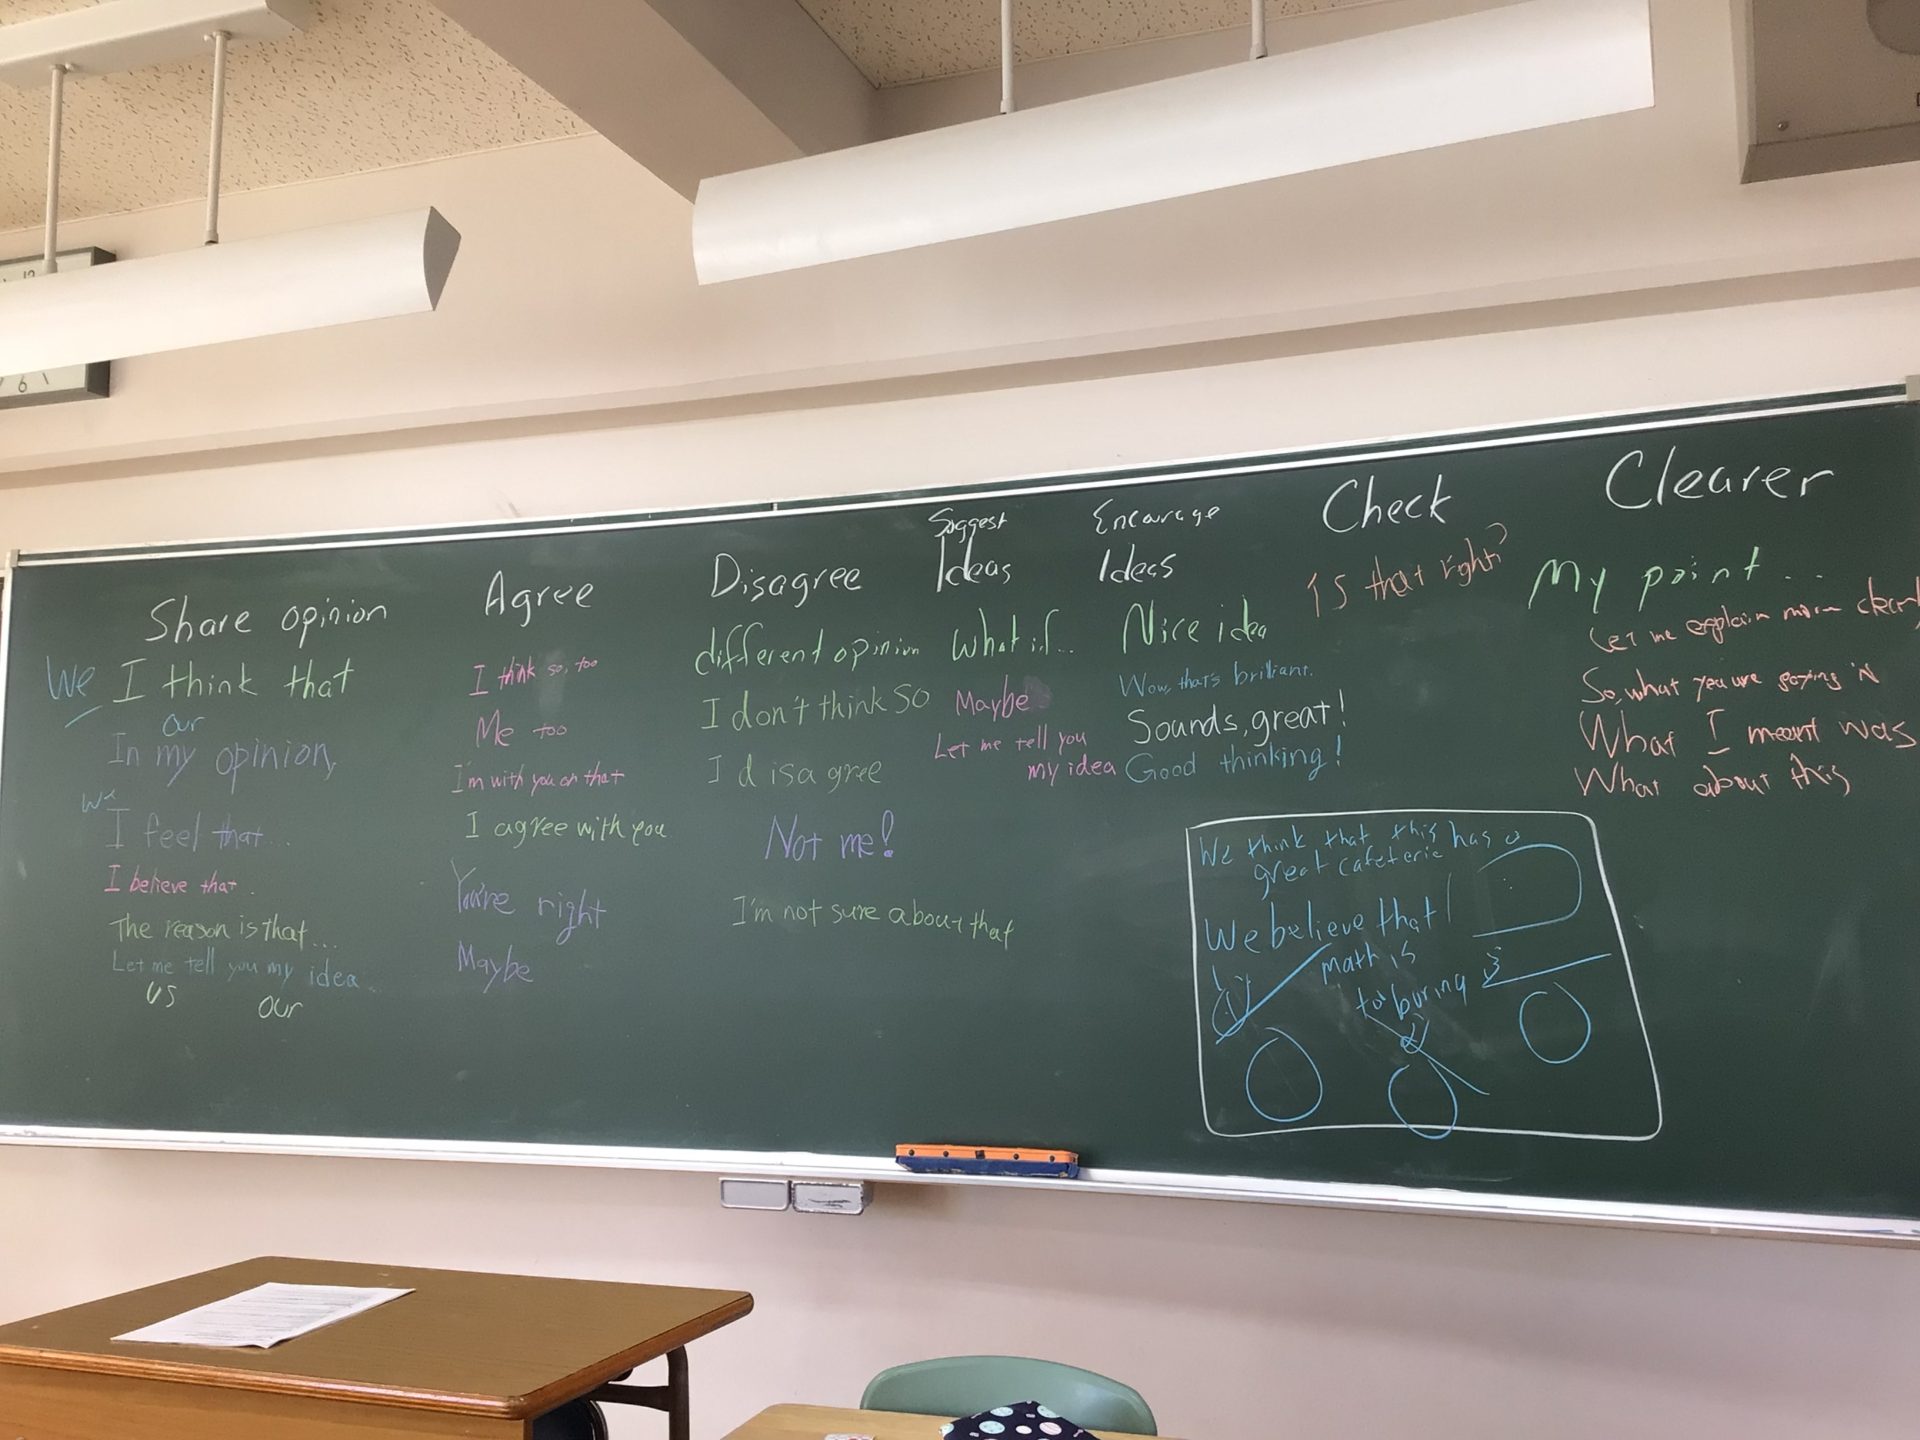 Share opinion
We I think that
our
In my opinion,
we
I feel that...
I believe that.
The reason is that...
Let me tell you my idea...
us our
Agree
I think so, too
Me too
I'm with you on that
I agree with you
You're right
Maybe
Disagree
different opinion
I don't think so
I disagree
Not me!
I'm not sure about that
Suggest
Ideas
What if...
Maybe
Let me tell you
my idea
Encourage
Ideas
Nice idea
Wow, that's brilliant.
Sounds, great!
Good thinking!
Check
is that right?
Clearer
My point...
Let me explain more clearly
So, what you are saying is
What I meant was
What about this
We think that this has a
great cafeteria
We believe that
math is
to boring
12
6